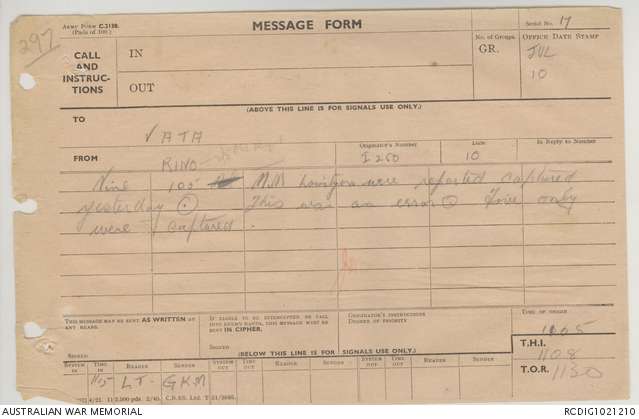 297
ARMY FORM C.2128.
(Pads of 100.)
MESSAGE FORM
Serial No. 17
CALL AND INSTRUC-TIONS
IN
OUT
No. of Groups.
GR.
OFFICE DATE STAMP
JUL
10
(ABOVE THIS LINE IS FOR SIGNALS USE ONLY.)
TO
VATA
FROM
RINO
Originator's Number
I 250
Date
10
In Reply to Number
Nine 105 M.M howitzers were reported captured
yesterday . This was an error . Five only
were captured .
THIS MESSAGE MAY BE SENT AS WRITTEN BY
ANY MEANS.
SIGNED
IF LIABLE TO BE INTERCEPTED OR FALL
INTO ENEMY HANDS, THIS MESSAGE MUST BE
SENT IN CIPHER.
SIGNED
ORIGINATOR'S INSTRUCTIONS
DEGREE OF PRIORITY
TIME OF ORIGIN
1005
T.H.I.
1108
T.O.R.
1130
(BELOW THIS LINE IS FOR SIGNALS USE ONLY.)
SYSTEM IN
TIME IN
READER
SENDER
SYSTEM OUT
TIME OUT
READER
SENDER
SYSTEM OUT
TIME OUT
READER
SENDER
LT
GKM
AUSTRALIAN WAR MEMORIAL
RCDIG1021210